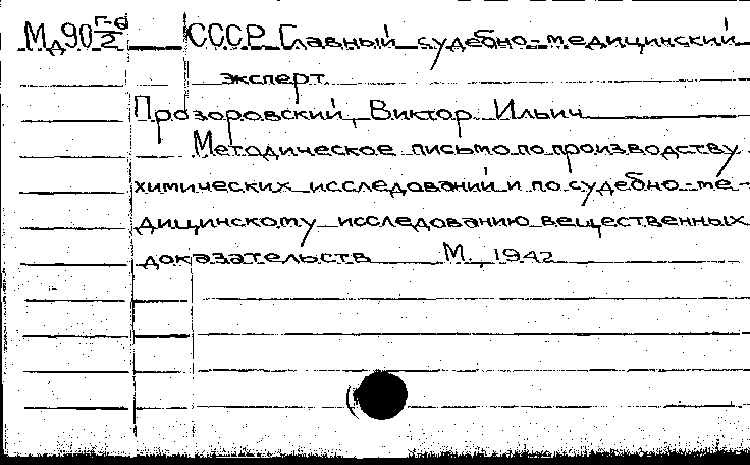 Мд90 Г-6/2 СССР. Главный судебно-медицинский
эксперт.
Прозоровский, Виктор Ильич
Методическое письмо по производству
химических исследований и по судебно-ме-
дицинскому исследованию вещественных
доказательств М., 1942